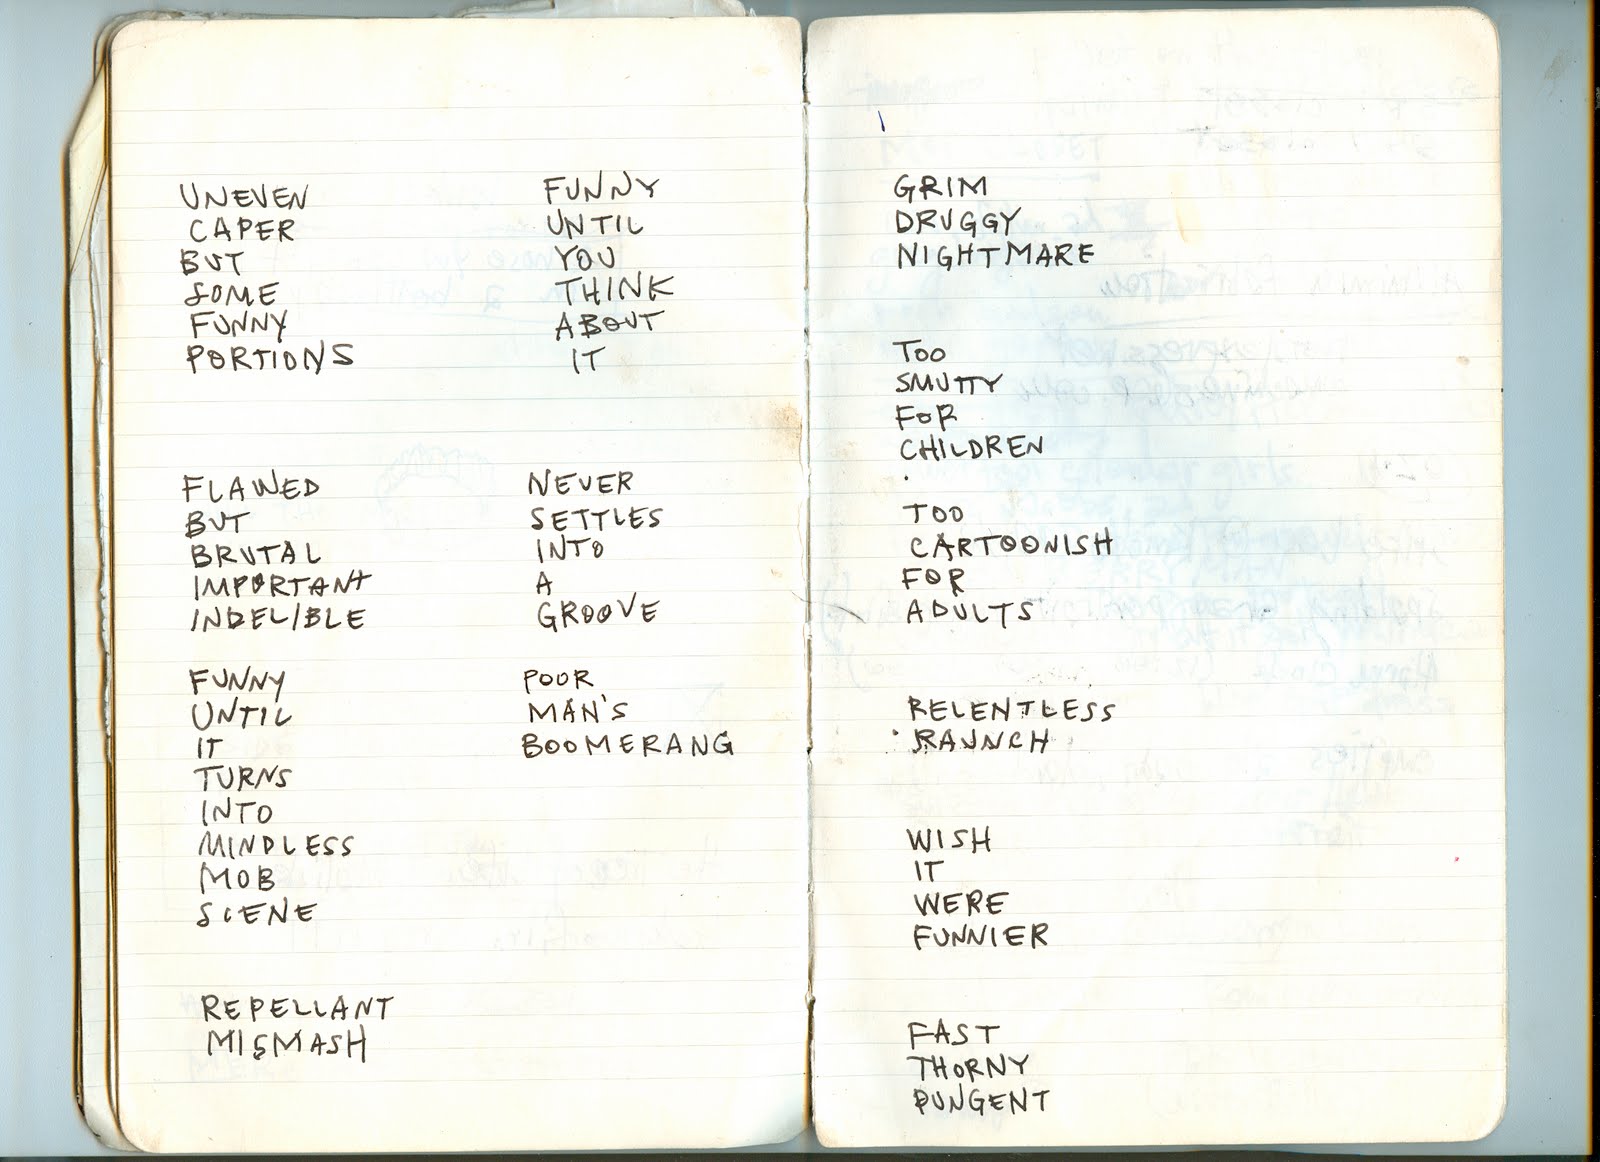 UNEVEN
CAPER
BUT
SOME
FUNNY
PORTIONS
FUNNY
UNTIL
YOU
THINK
ABOUT
IT
FLAWED
BUT
BRUTAL
IMPORTANT
INDELIBLE
NEVER
SETTLES
INTO
A
GROOVE
FUNNY
UNTIL
IT
TURNS
INTO
MINDLESS
MOB
SCENE
POOR
MAN'S
BOOMERANG
REPELLANT
MISMASH
GRIM
DRUGGY
NIGHTMARE
TOO
SMUTTY
FOR
CHILDREN
.
TOO
CARTOONISH
FOR
ADULTS
RELENTLESS
RAUNCH
WISH
IT
WERE
FUNNIER
FAST
THORNY
PUNGENT